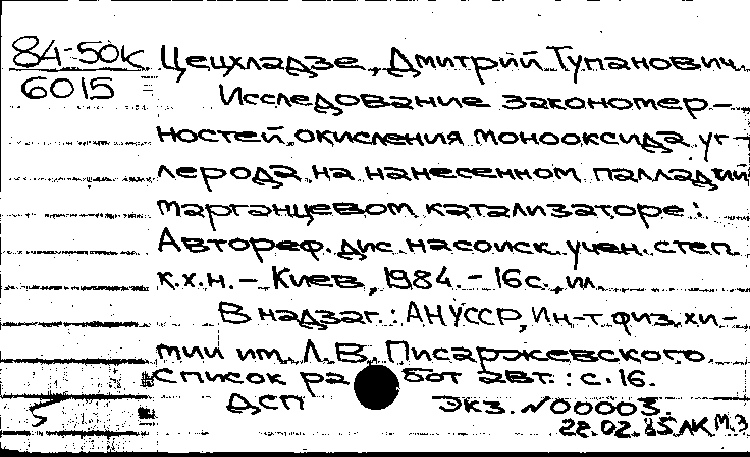 84-50К Цецхладзе, Дмитрий Тупанович
6015
Исследование закономер-
ностей окисления монооксида уг-
лерода на нанесенном палладий
марганцевом катализаторе:
Автореф. дис. на соиск. учен. степ.
к.х.н. – Киев, 1984. – 16с., ил.
В надзаг.: АН УССР, Ин-т физ. хи-
мии им. Л.В. Писаржевского.
Список работ авт.: с. 16.
ДСП Экз. №00003.
28.02.85 ЛК М.З